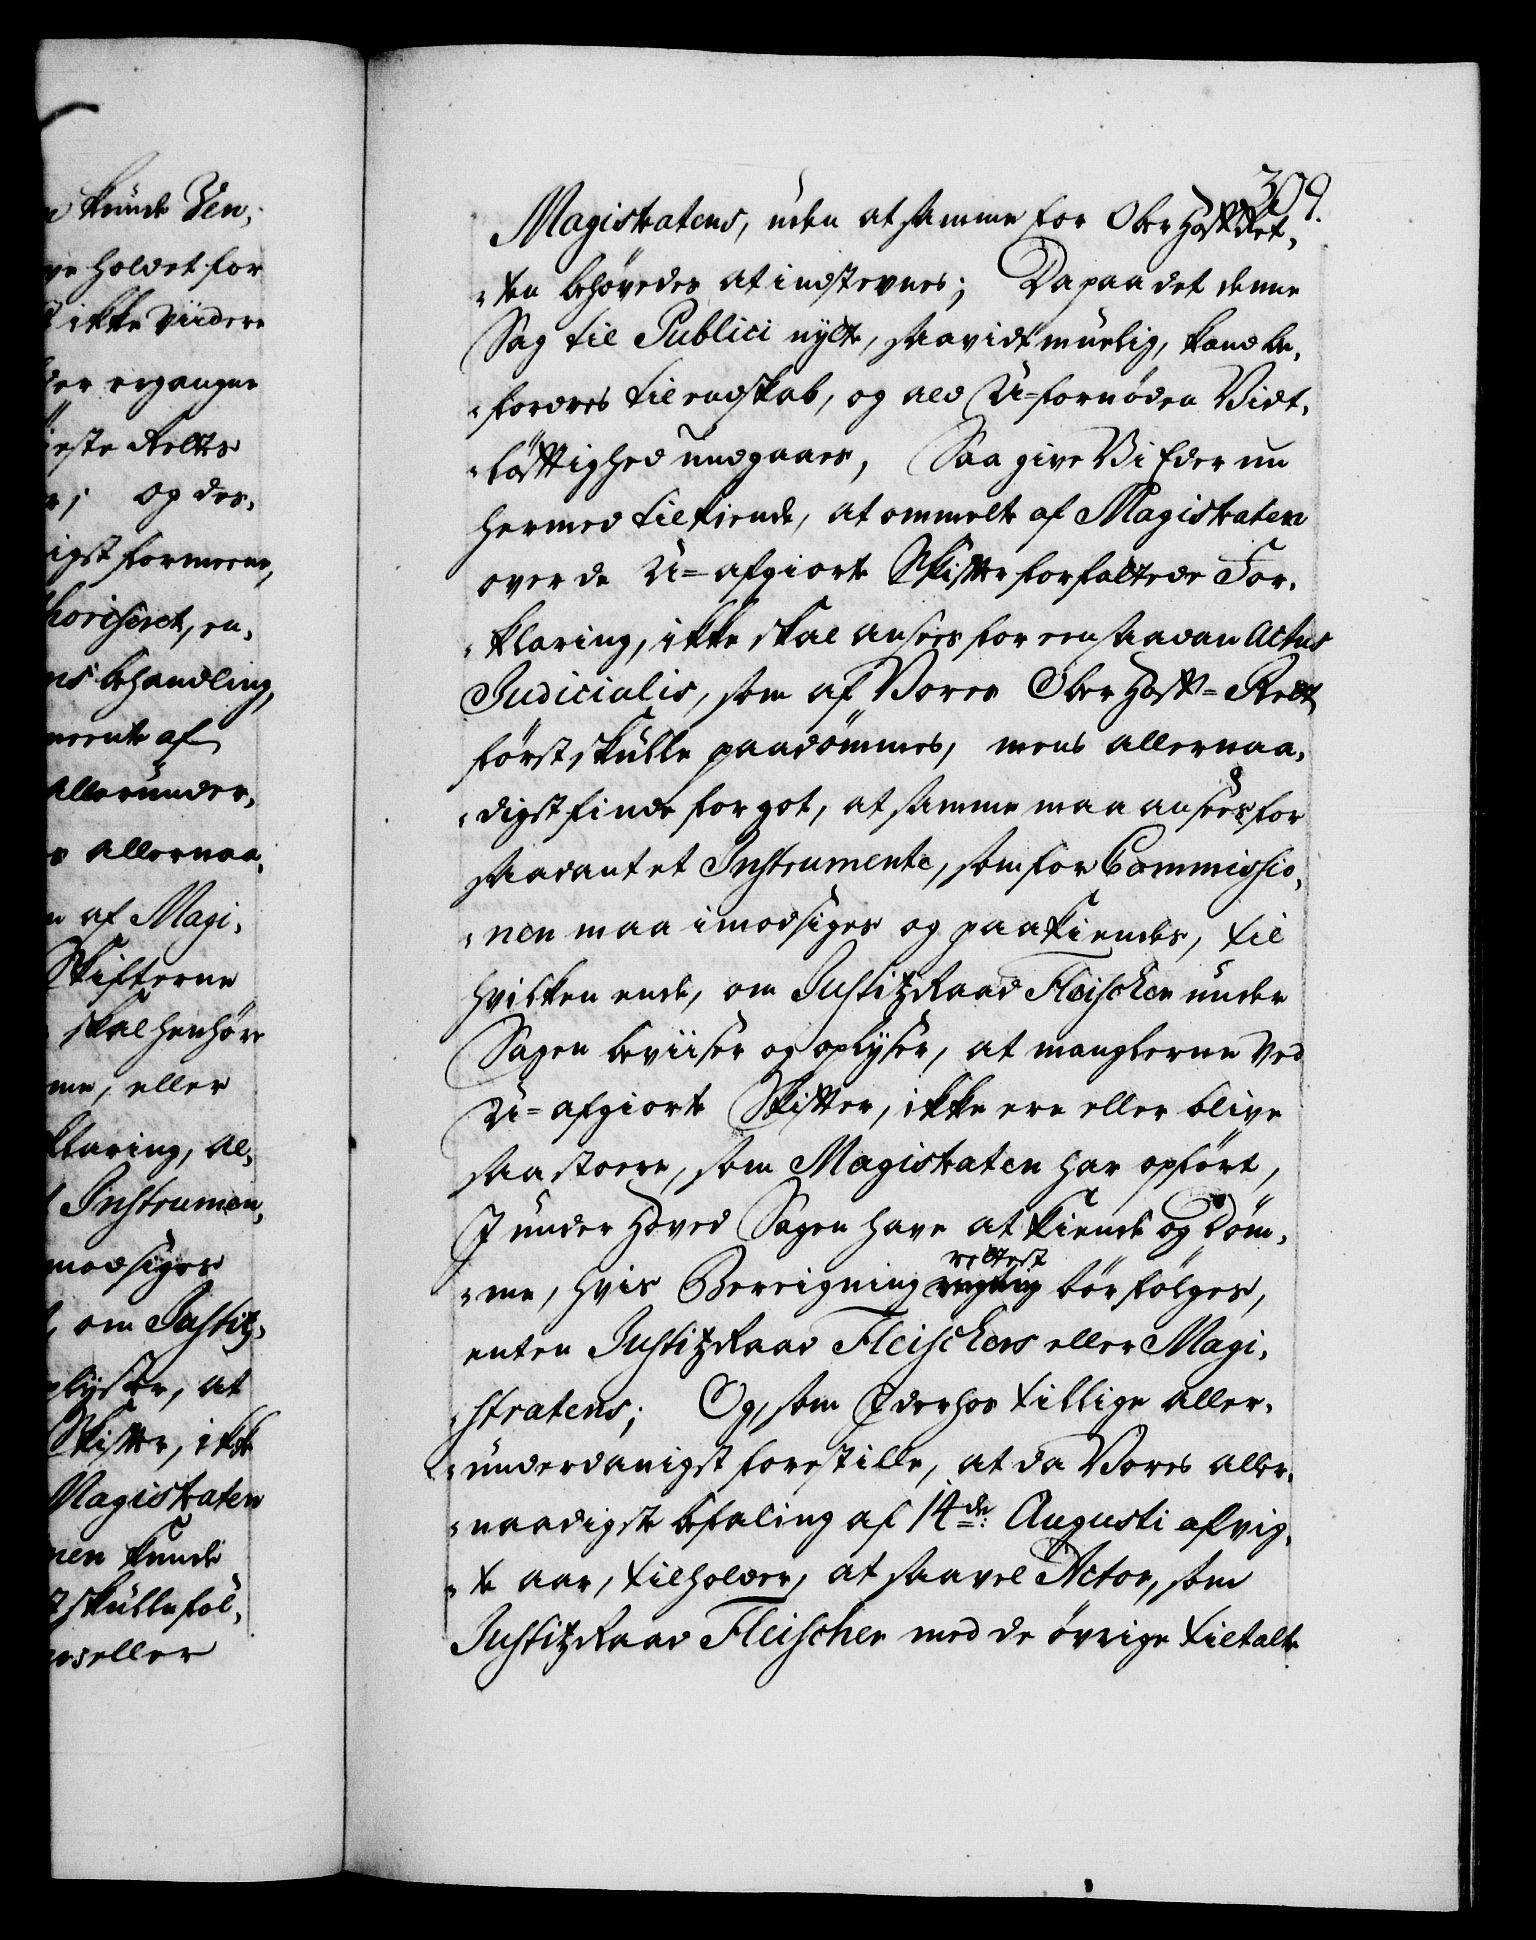 n kunde Ven,
ve holdet for
t ikke viidere
der ergangne
ieste Retts
r; og des,
igst formeene,
horiseret, en,
ns behandling,
meente af
allerunder,
s allernaa,
n af Magi,
Skifterne
skal henhøre
me, eller
klaring, al,
t Instrumen,
modsiges
, om Justitz,
plyser, at
Skifter, ikke
Magistraten
nen kunde
t skulle føl,
rs eller
309.
Magistratens, uden at samme for Ober Hoff Ret,
ten behøvedes at indstevnes; Da paa det denne
Sag til Publici nytte, saavidt muelig, kand be,
fordres til endskab, og ald U=fornøden Vidt,
løfftighed undgaaes, Saa give Vi Eder nu
hermed tilkiende, at ommelte af Magistraten
over de U=afgiorte Skiffter forfattede For,
klaring, ikke skal ansees for een saadan Actus
Judicialis, som af Vores Ober Hoff=Rett
først skulle paadømmes, mens allernaa,
digst finde for got, at samme maa ansees for
saadant et Instrumente, som for Commissio,
nen maa imodsiges og paakiendes, til
hvilken ende, om Justitz Raad Fleischer under
Sagen beviiser og oplyser, at manglerne ved
U=afgiorte Skiffter, ikke ere eller blive
saa store, som Magistraten har opført,
I under Hoved Sagen have at kiende og Døm,
me, hvis Bereigning rettest bør følges,
enten Justitz Raad Fleischers eller Magi,
stratens; Og, som I derhos tillige aller,
underdanigst forestille, at da Vores aller,
naadigste befaling af 14de Augusti afvig,
te aar, tilholder, at saavel Actor, som
Justitz Raad Fleischer med de øvrige tiltalte